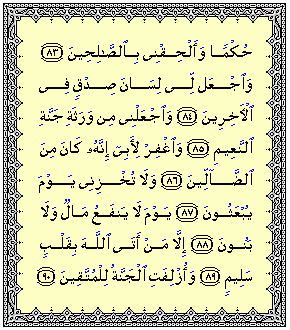 حُكْمًا وَأَلْحِقْنِى بِٱلصَّٰلِحِينَ ﴿٨٣﴾
وَٱجْعَل لِّى لِسَانَ صِدْقٍ فِى
ٱلْءَاخِرِينَ ﴿٨٤﴾ وَٱجْعَلْنِى مِن وَرَثَةِ جَنَّةِ
ٱلنَّعِيمِ ﴿٨٥﴾ وَٱغْفِرْ لِأَبِىٓ إِنَّهُۥ كَانَ مِنَ
ٱلضَّآلِّينَ ﴿٨٦﴾ وَلَا تُخْزِنِى يَوْمَ
يُبْعَثُونَ ﴿٨٧﴾ يَوْمَ لَا يَنفَعُ مَالٌ وَلَا
بَنُونَ ﴿٨٨﴾ إِلَّا مَنْ أَتَى ٱللَّهَ بِقَلْبٍ
سَلِيمٍ ﴿٨٩﴾ وَأُزْلِفَتِ ٱلْجَنَّةُ لِلْمُتَّقِينَ ﴿٩٠﴾